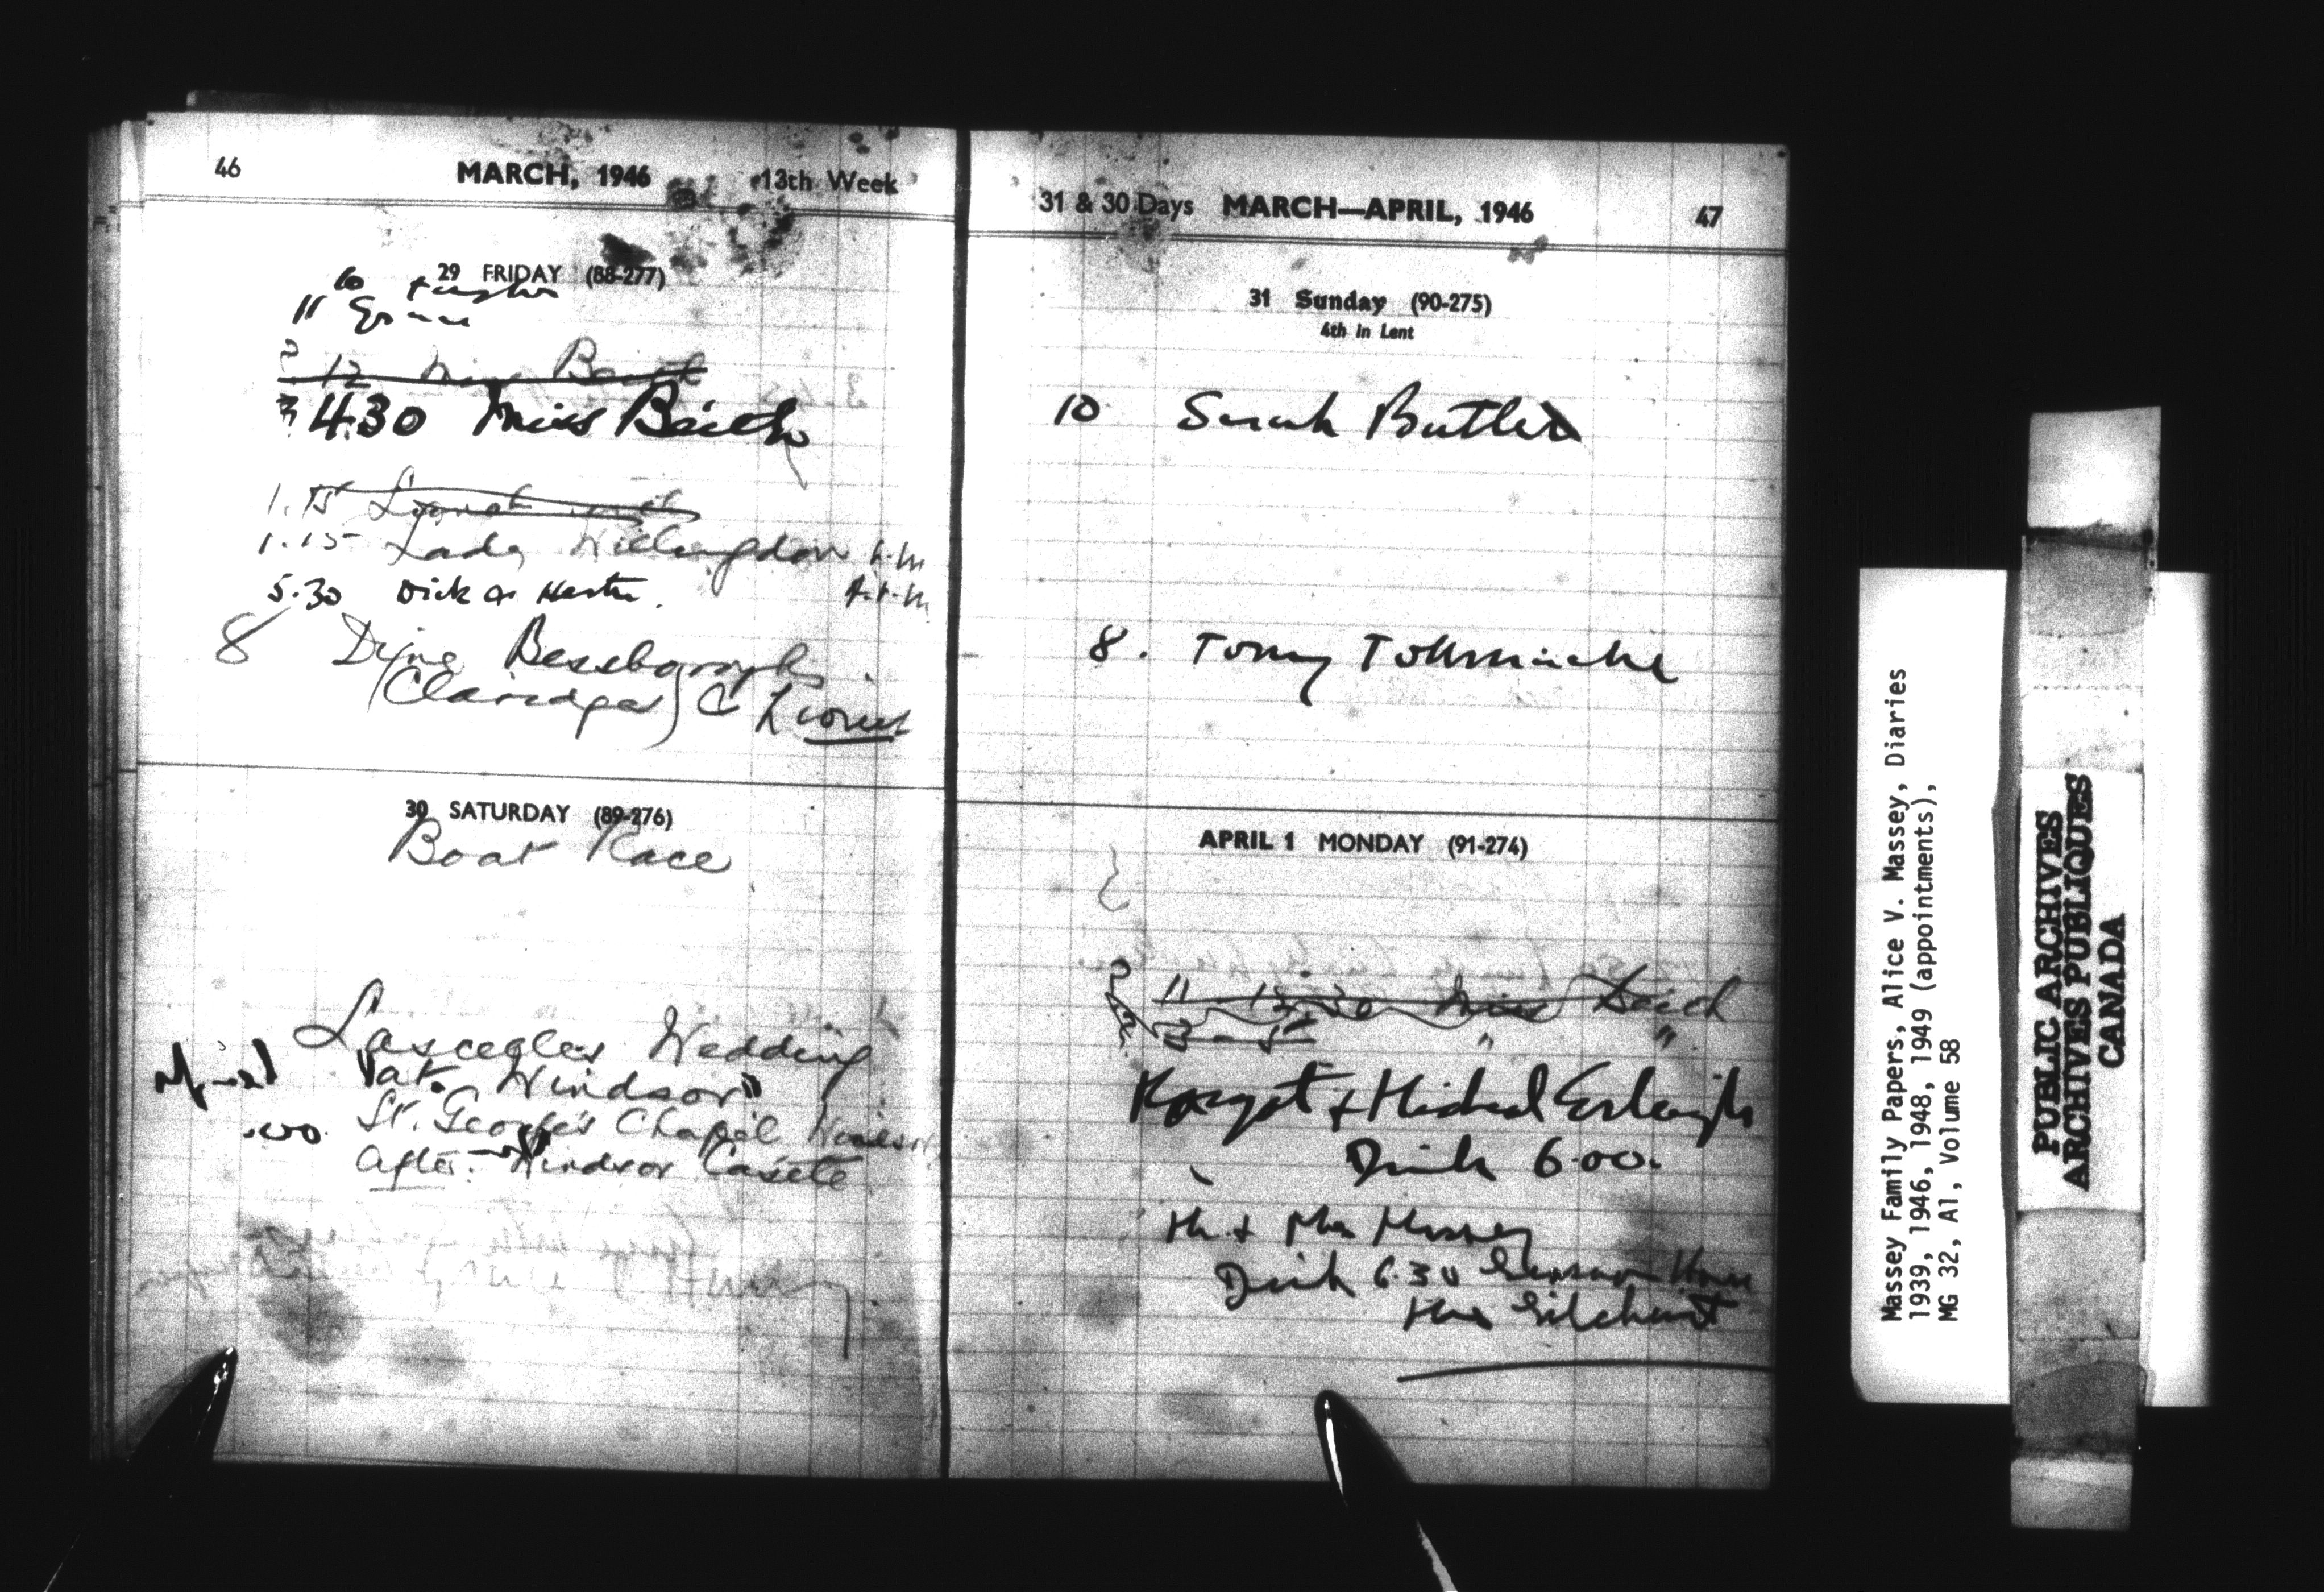 46 MARCH, 1946 13th Week
29 FRIDAY (88-277)
10
11
? 12 Miss
? 4.30 Miss
1.15
1.15 Lady Willingdon A.M
5.30 Dick or Hart A.V.M.
8 Dine Bessborough
(Claridges) C Lionel
30 SATURDAY (89-276)
Boat Race
Lascelles Wedding
refused at Windsor
St. George's Chapel Windsor
After - Windsor Castle
31 & 30 Days MARCH—APRIL, 1946 47
31 Sunday (90-275)
4th in Lent
10 Sarah Butler
8. Tony Tollemache
APRIL 1 MONDAY (91-274)
? 11 - 12.30 Miss
3 - 5 " "
& Michael Erleigh
Drink 6.00.
Mr & Mrs
Drink 6.30 House
Gilchrist
Massey Family Papers, Alice V. Massey, Diaries
1939, 1946, 1948, 1949 (appointments),
MG 32, A1, Volume 58
PUBLIC ARCHIVES
ARCHIVES PUBLIQUES
CANADA